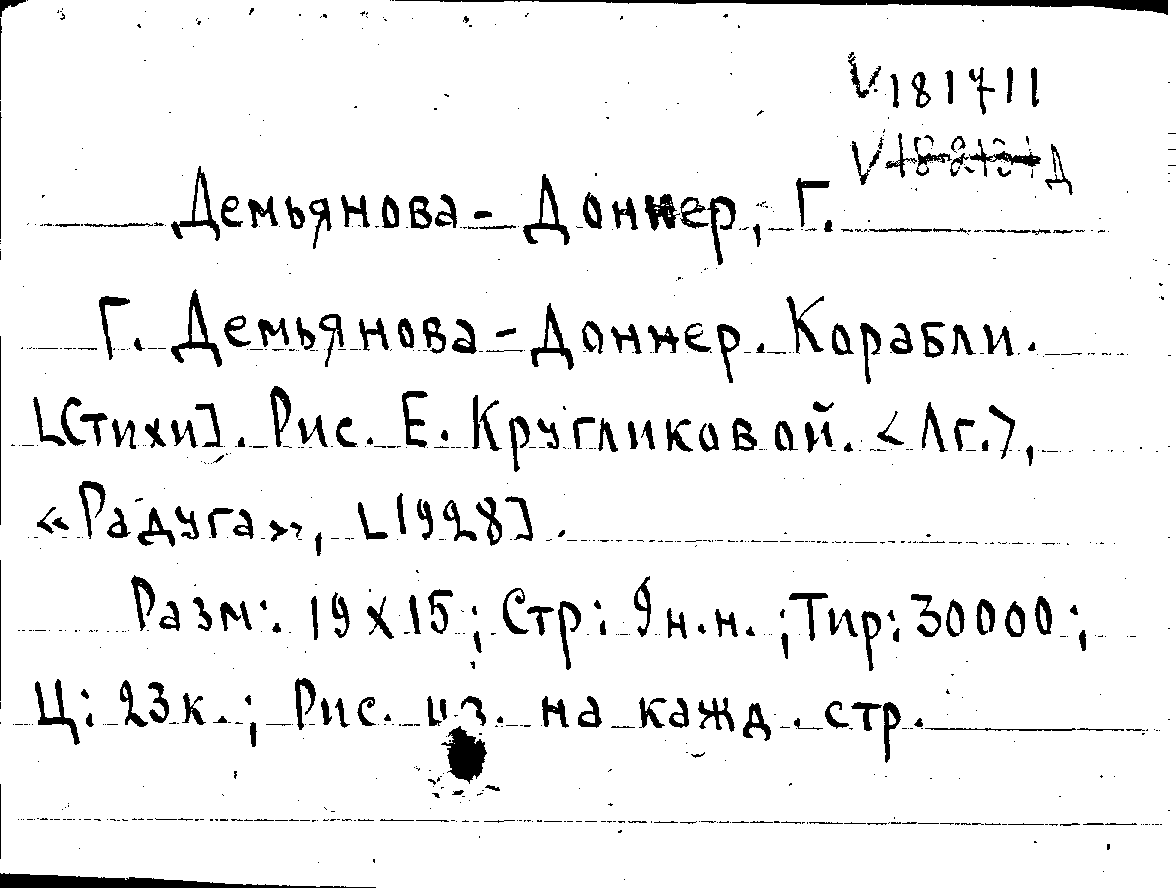 V181711
Демьянова-Доннер, Г.
Г. Демьянова-Доннер. Корабли.
[Стихи]. Рис. Е. Кругликовой. <Лг.>,
«Радуга», [1928].
Разм: 19x15; Стр: 9н.н.; Тир: 30000;
Ц: 23к.; Рис. на кажд. стр.